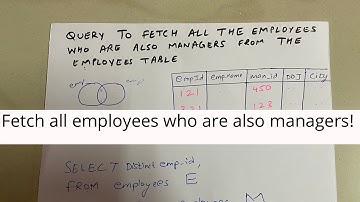 QUERY TO FETCH ALL THE EMPLOYEES
WHO ARE ALSO MANAGERS FROM THE
EMPLOYEES TABLE
empId empname man_id DOJ City
121 450
321 123
Fetch all employees who are also managers!
SELECT Distinct emp-id,
FROM employees E
M